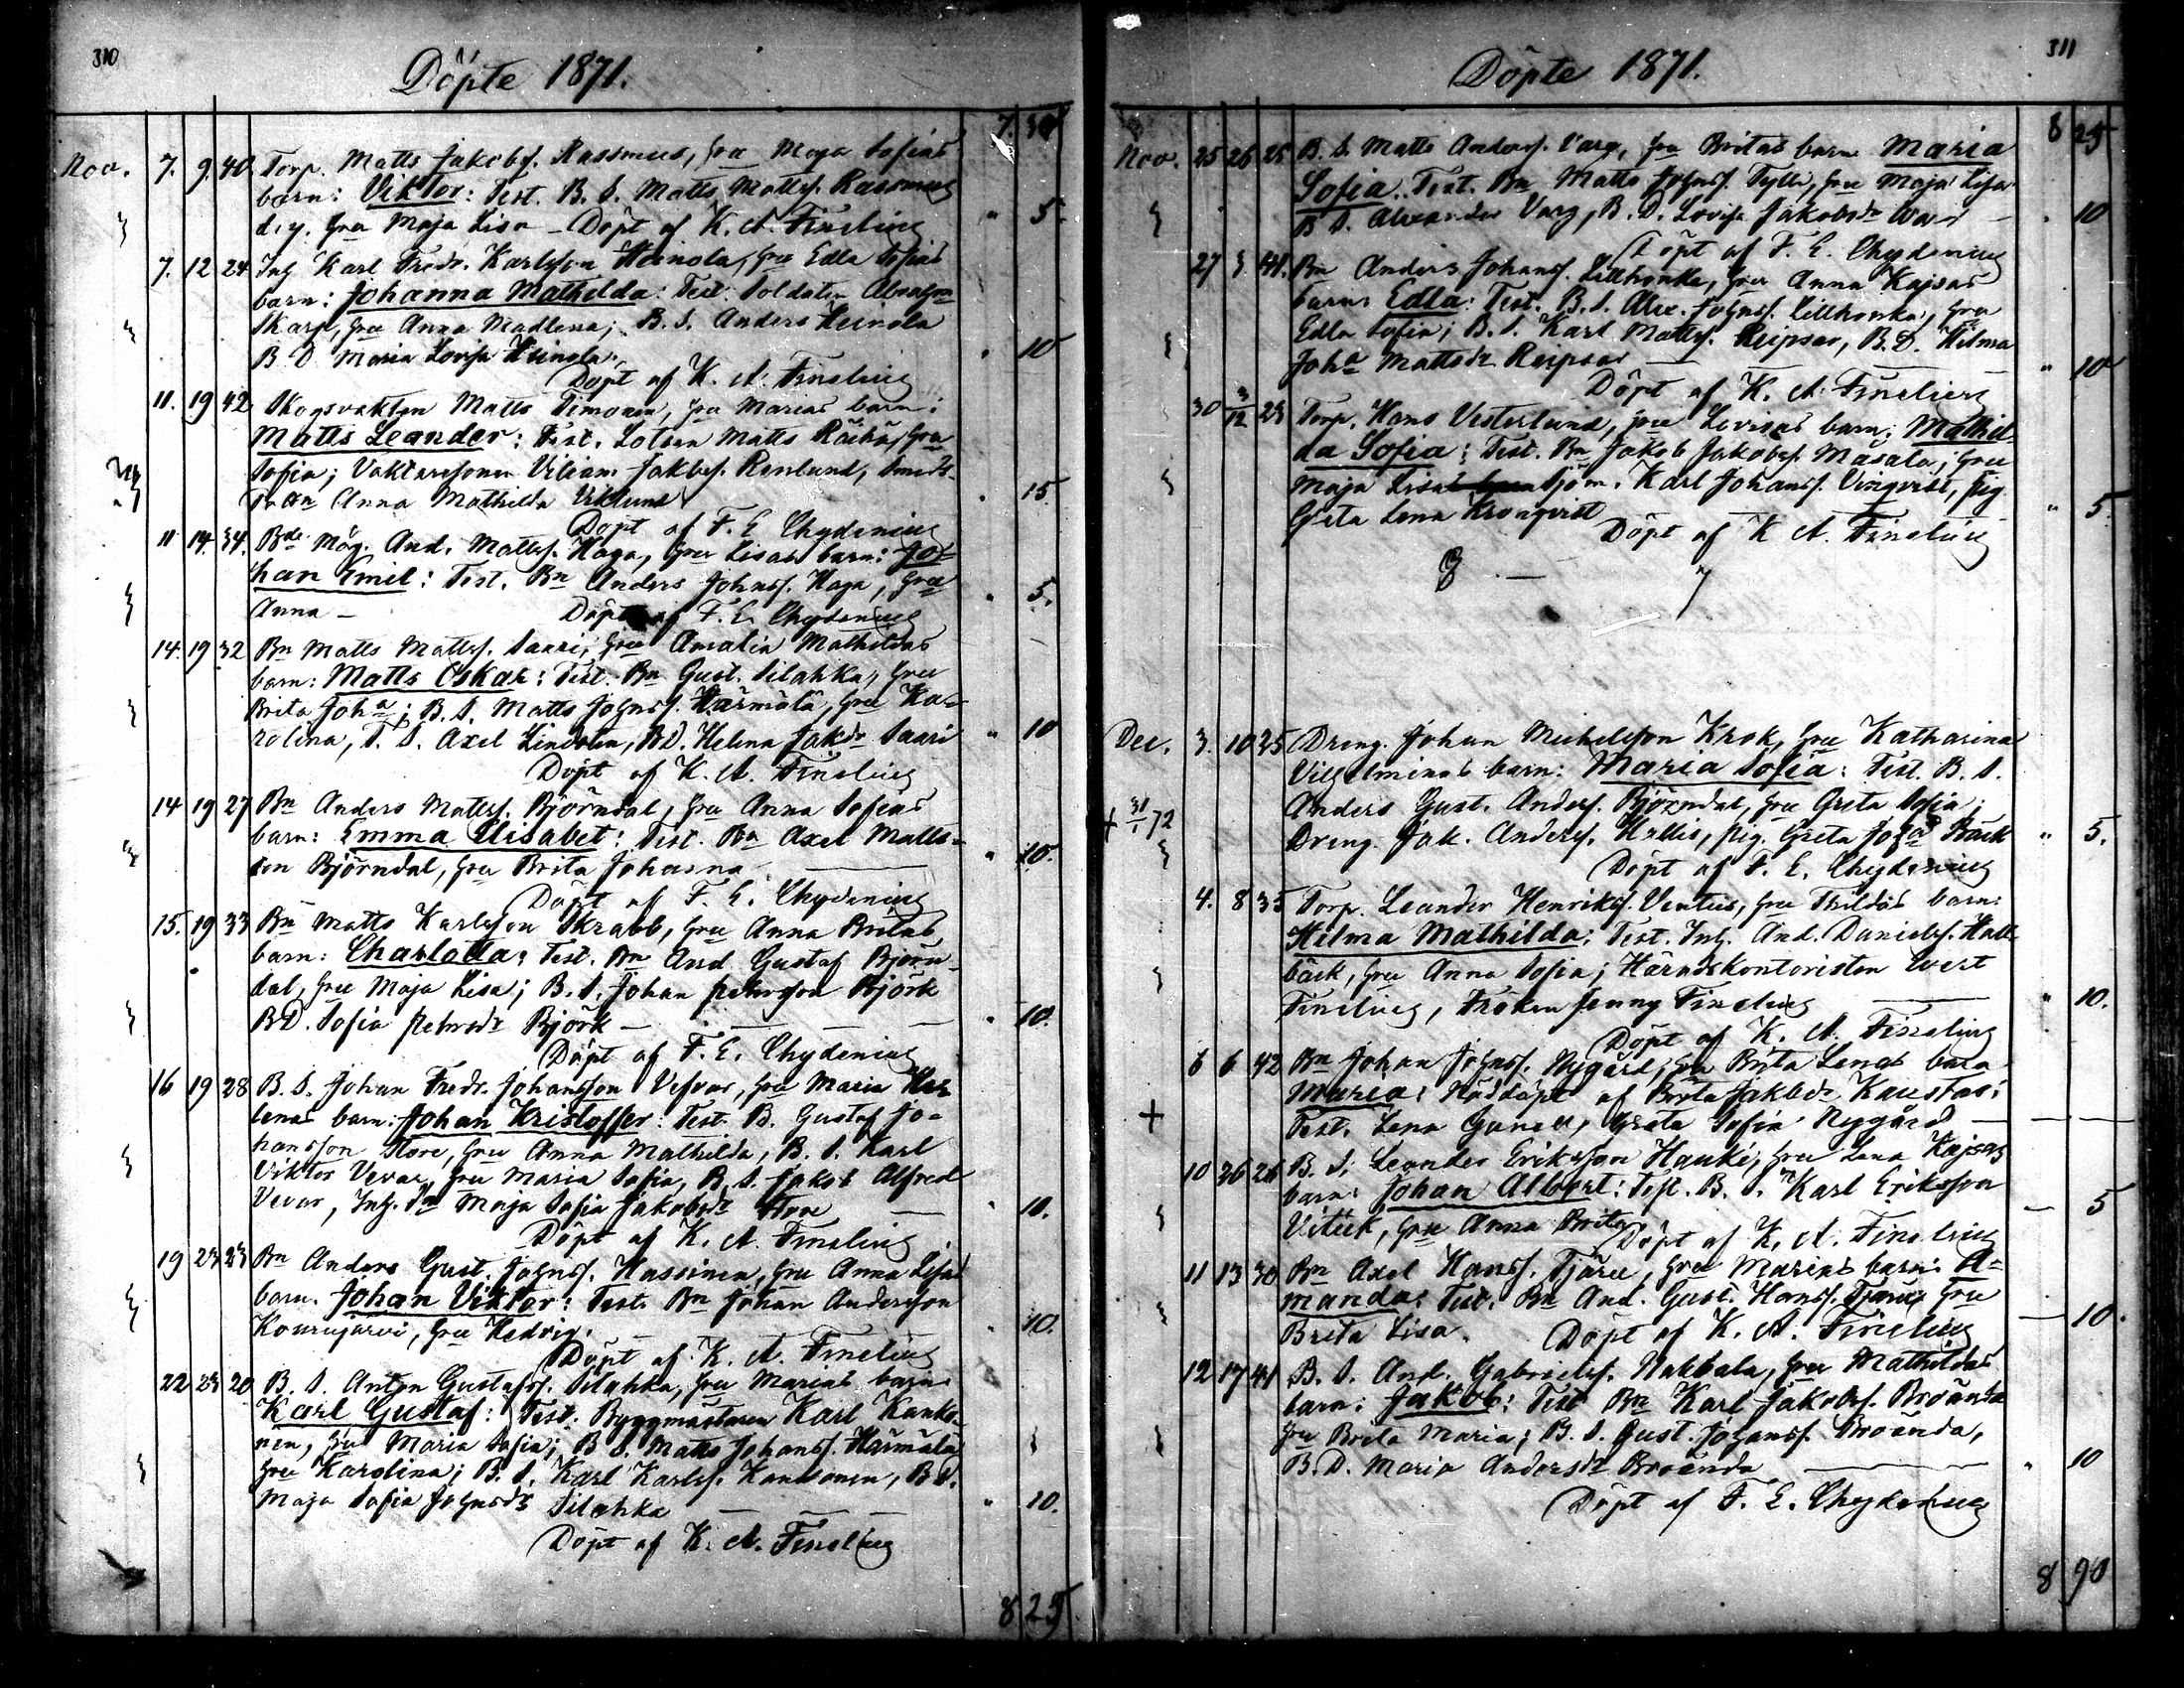 310
Döpte 1871.
7. 30
Nov. 7. 9. 40. Torp. Matts Jakobs. Rassmus, hru Maja Sofias
barn: Viktor: Test. B. S. Matts Mattss. Rassmus
d.y. hru Maja Lisa – Döpt af K. A. Finelius " 5.
7. 12 24 Inh Karl Fredr. Karlsson Heinola, hru Edla Sofias
barn: Johanna Mathilda: Test. Soldaten Absalom
Skarp, hru Anna Madlena; B. S. Anders Heinola
B D Maria Lovisa Heinola " 10
Döpt af K. A. Finelius
11. 19 42 Skogsvakten Matts Timonen, hru Marias barn:
Matts Leander: Test. Lotsen Matts Räihä, hru
Sofia; Vaktarsonen Viliam Jakobs. Renlund,
Anna Mathilda Viklund " 15
Döpt af F. E. Chydenius
11 14. 34. Bde Måg. And. Mattss. Haga, hru Lisas barn: Jo-
han Emil: Test. Bn Anders Johnss. Haga, hru
Anna – " 5.
Döpt af F. E. Chydenius
14. 19 32 Bn Matts Mattss. Saari, hru Amalia Mathildas
barn: Matts Oskar: Test. Bn Gust. Silahka, hru
Brita Joha; B. S. Matts Johnss. Härmälä, hru Ka-
rolina, T. S. Axel Lindolin, BD. Helena Jakdr Saari " 10
Döpt af K. A. Finelius
14 19 27 Bn Anders Mattss. Björndal, hru Anna Sofias
barn: Emma Elisabet: Test. Bn Axel Matts-
son Björndal, hru Brita Johanna " 10.
Döpt af F. E. Chydenius
15. 19 33 Bn Matts Karlsson Skrabb, hru Anna Britas
barn: Charlotta: Test. Bn And Gustaf Björn-
dal, hru Maja Lisa; B. S. Johan Petersson Björk
BD. Sofia Petersdr Björk – " 10.
Döpt af F. E. Chydenius
16 19 28 B. S. Johan Fredr. Johansson Vefvar, hru Maria He-
lenas barn: Johan Kristoffer: Test. B. Gustaf Jo-
hansson Store, hru Anna Mathilda, B. S. Karl
Viktor Vevar, hru Maria Sofia, B. S. Jakob Alfred
Vevar, Inh. Maja Sofia Jakobsdr Store " 10.
Döpt af K. A. Finelius
19 23 23 Bn Anders Gust. Johnss. Hassinen, hru Anna Lisas
barn. Johan Viktor: Test. Bn Johan Andersson
Kourujärvi, hru Hedvig. " 10.
Döpt af K. A. Finelius
22 23 20 B. S. Anton Gustafss. Silahka, hru Marias barn:
Karl Gustaf: Test. Byggmästaren Karl Kanko-
nen, hru Maria Sofia; B S. Matts Johanss. Härmälä
hru Karolina; B. S. Karl Karlss. Kankonen, B D.
Maja Sofia Johnsdr Silahka " 10.
Döpt af K. A. Finelius
8 25
311
Döpte 1871.
8 25
Nov. 25 26 25 B. S. Matts Anderss. Varg, hru Britas barn Maria
Sofia. Test. Bn Matts Johnss. Tylli, hru Maja Lisa
B S. Alexander Varg, B. D. Lovisa Jakobsdr " 10
Döpt af F. E. Chydenius
27 3 41. Bn Anders Johanss. Lillhonka, hru Anna Kajsas
barn: Edla: Test. B. S. Alex. Johnss. Lillhonka, hru
Edla Sofia; B. S. Karl Mattss. Reipsar, B. D. Hilma
Joha Mattsdr Reipsar " 10
Döpt af K. A. Finelius
30 3/12 23 Torp. Hans Vesterlund, hru Lovisas barn: Mathil-
da Sofia: Test. Bn Jakob Jakobss. Måsala, hru
Maja Lisa Sjöm. Karl Johanss. Vinqvist, pig.
Greta Lena Kronqvist " 5.
Döpt af K A. Finelius
8 – 7
Dec. 3. 10 35 Dreng. Johan Mickelsson Krok, hru Katharina
Vilhelminas barn: Maria Sofia: Test. B. S.
Anders Gust. Anderss. Björndal, hru Greta Sofia;
+ 31/1 72 Dreng. Jak. Anderss. Hallis, pig. Greta Joha Bäck " 5.
Döpt af F. E. Chydenius
4. 8 35 Torp. Leander Henrikss. Ventus, hru Thildas barn:
Hilma Mathilda: Test. Inh. And. Danielss. Hall-
bäck, hru Anna Sofia; Häradskontoristen Evert
Finelius, Fröken Jenny Finelius " 10.
Döpt af K. A. Finelius
6 6 42 Bn Johan Johnss. Nygård, hru Brita Lenas barn
Maria: Nöddöpt af Brita Jakobsdr Kaustas:
+ Test. Lena Gunell, Greta Sofia Nygård –
10 26 26 B. S. Leander Eriksson Hauki, hru Lena Kajsas
barn: Johan Albert: Test. B. S. Karl Eriksson
Vitick, hru Anna Brita – 5
Döpt af K. A. Finelius
11 13 30 Bn Axel Hanss. Tjäru, hru Marias barn: A-
manda: Test. Bn And. Gust. Hanss. Tjäru, hru
Brita Lisa. Döpt af K. A. Finelius – 10.
12 17 41 B. S. And. Gabrielss. Nabbala, hru Mathildas
barn: Jakob: Test Bn Karl Jakobss. Broända
hru Brita Maria; B. S. Gust. Johanss. Broända,
B. D. Maria Andersdr Broända " 10
Döpt af F. E. Chydenius
8 90